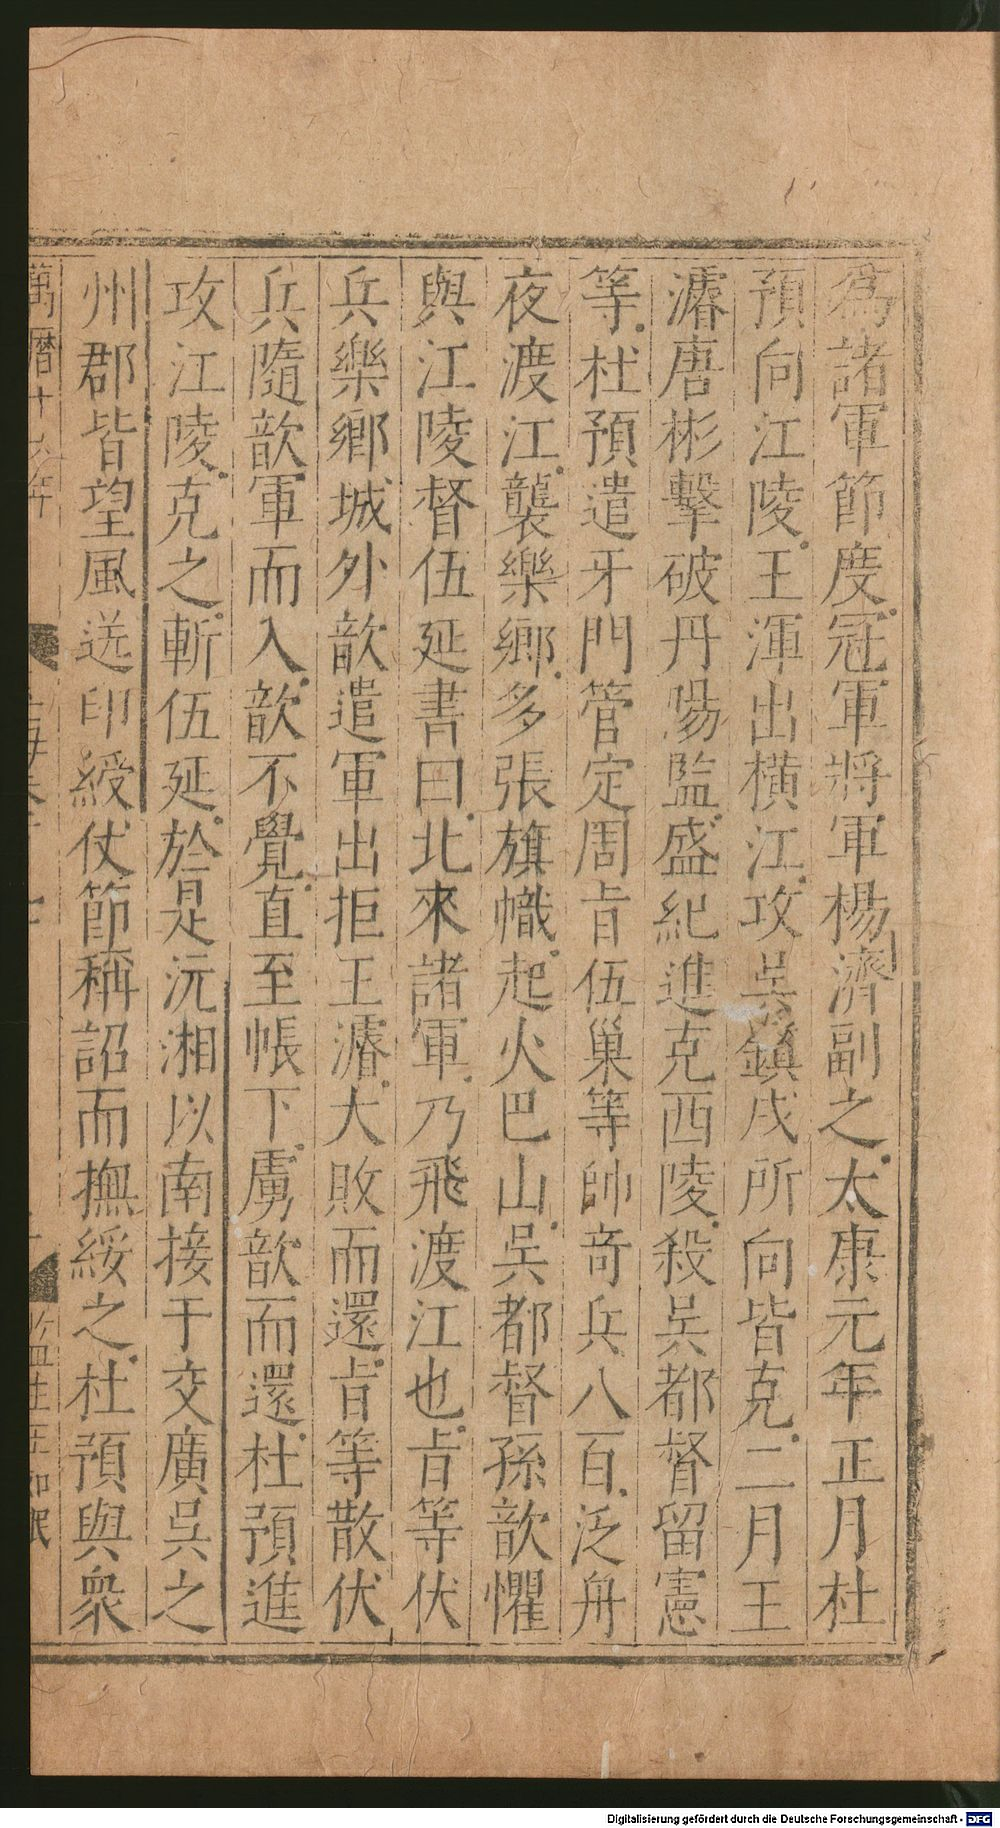 為諸軍節度冠軍將軍楊濟副之太康元年正月杜
預向江陵王渾出橫江攻吳鎮戍所向皆克二月王
濬唐彬擊破丹陽監盛紀進克西陵殺吳都督留憲
等杜預遣牙門管定周旨伍巢等帥奇兵八百泛舟
夜渡江襲樂鄉多張旗幟起火巴山吳都督孫歆懼
與江陵督伍延書曰北來諸軍乃飛渡江也旨等伏
兵樂鄉城外歆遣軍出拒王濬大敗而還旨等散伏
兵隨歆軍而入歆不覺直至帳下虜歆而還杜預進
攻江陵克之斬伍延於是沅湘以南接于交廣吳之
州郡皆望風送印綬仗節稱詔而撫綏之杜預與衆
萬曆十六年
Digitalisierung gefördert durch die Deutsche Forschungsgemeinschaft - DFG